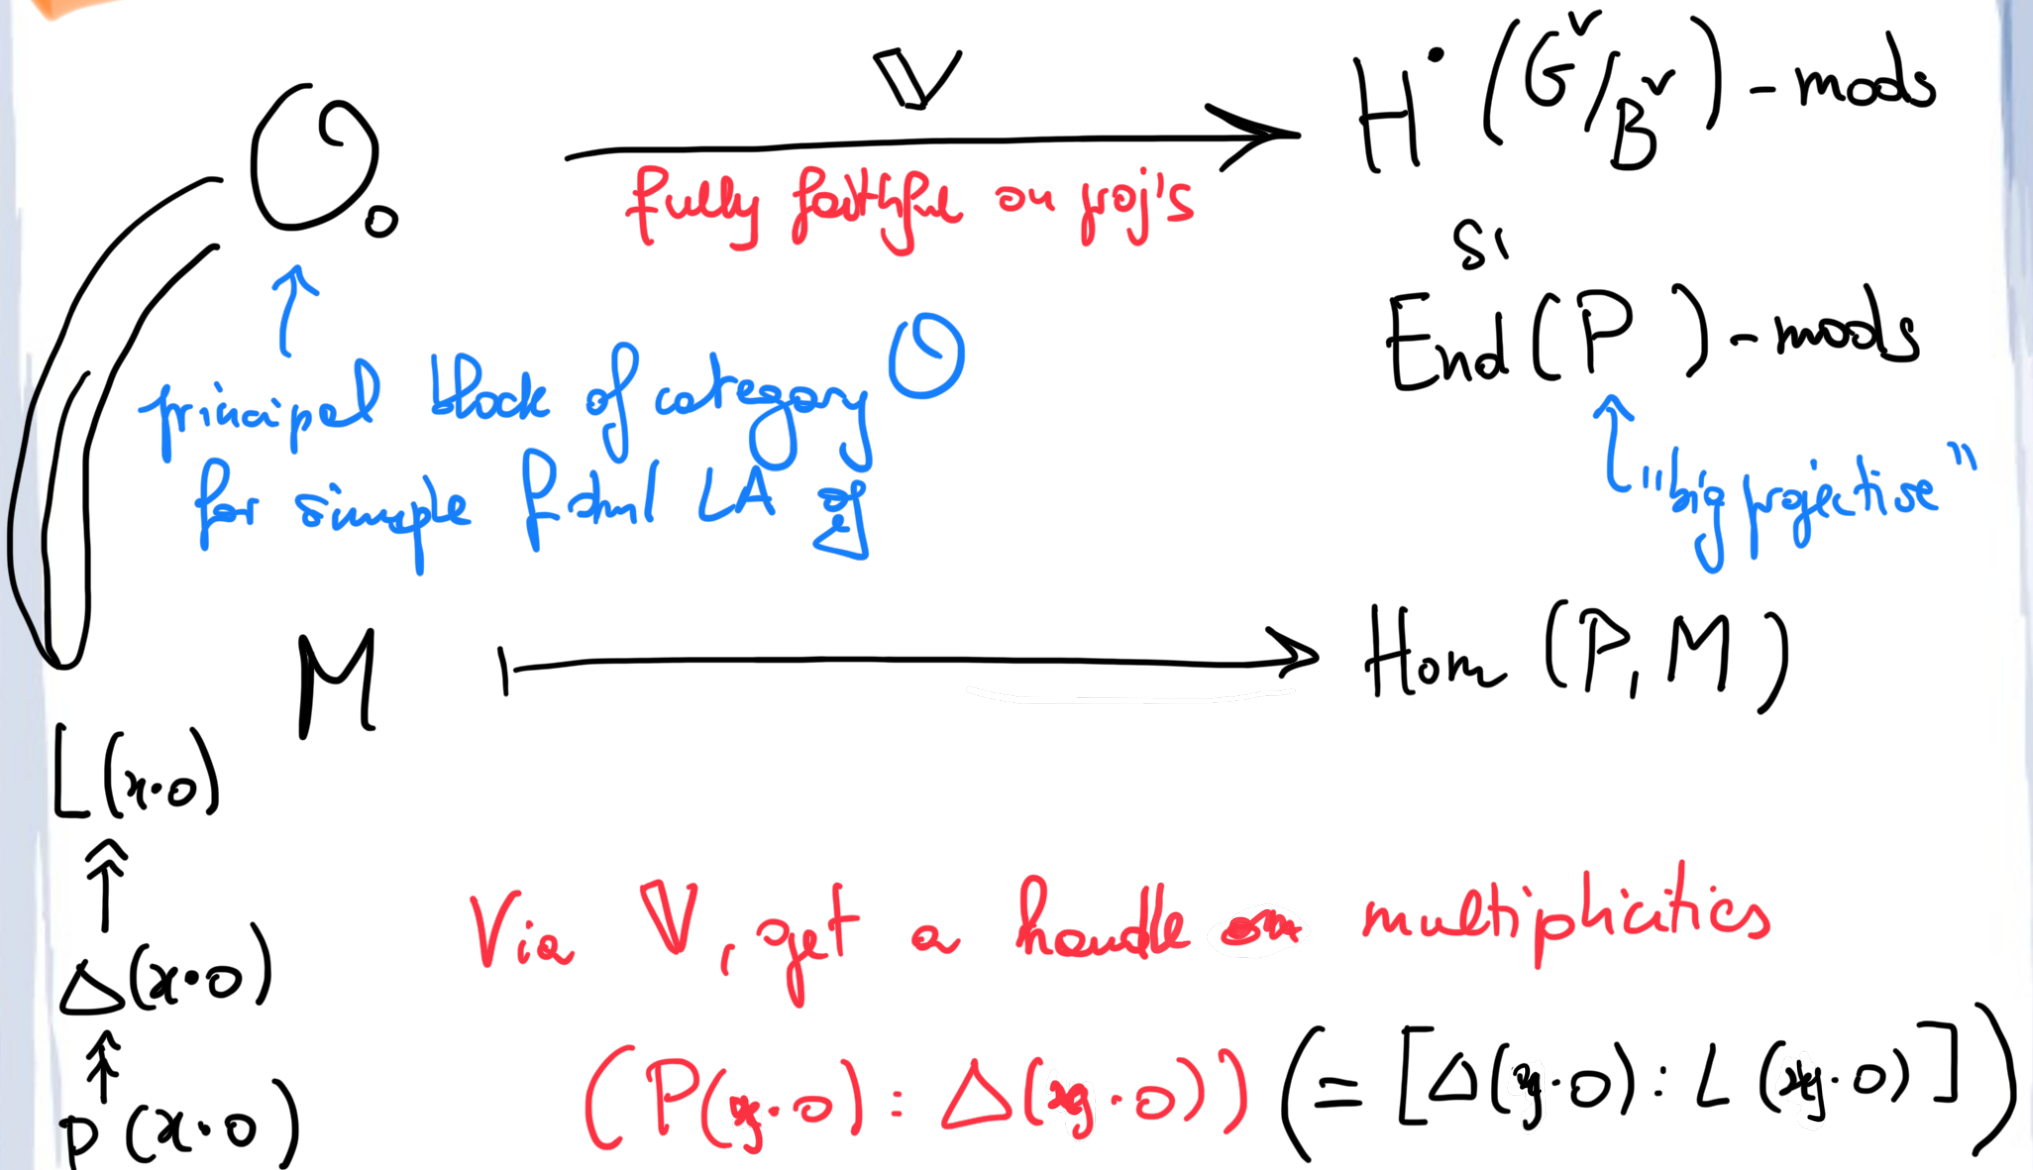 𝒪₀ 𝕍 H•(G^∨/B^∨) - mods
fully faithful on proj's
S\
End(P) - mods
principal block of category 𝒪
for simple f dml LA 𝔤
"big projective"
M ⟼ Hom(P, M)
L(x·0)
Via 𝕍, get a handle on multiplicities
Δ(x·0)
(P( ·0) : Δ( ·0)) (= [Δ( ·0) : L( ·0)])
P(x·0)